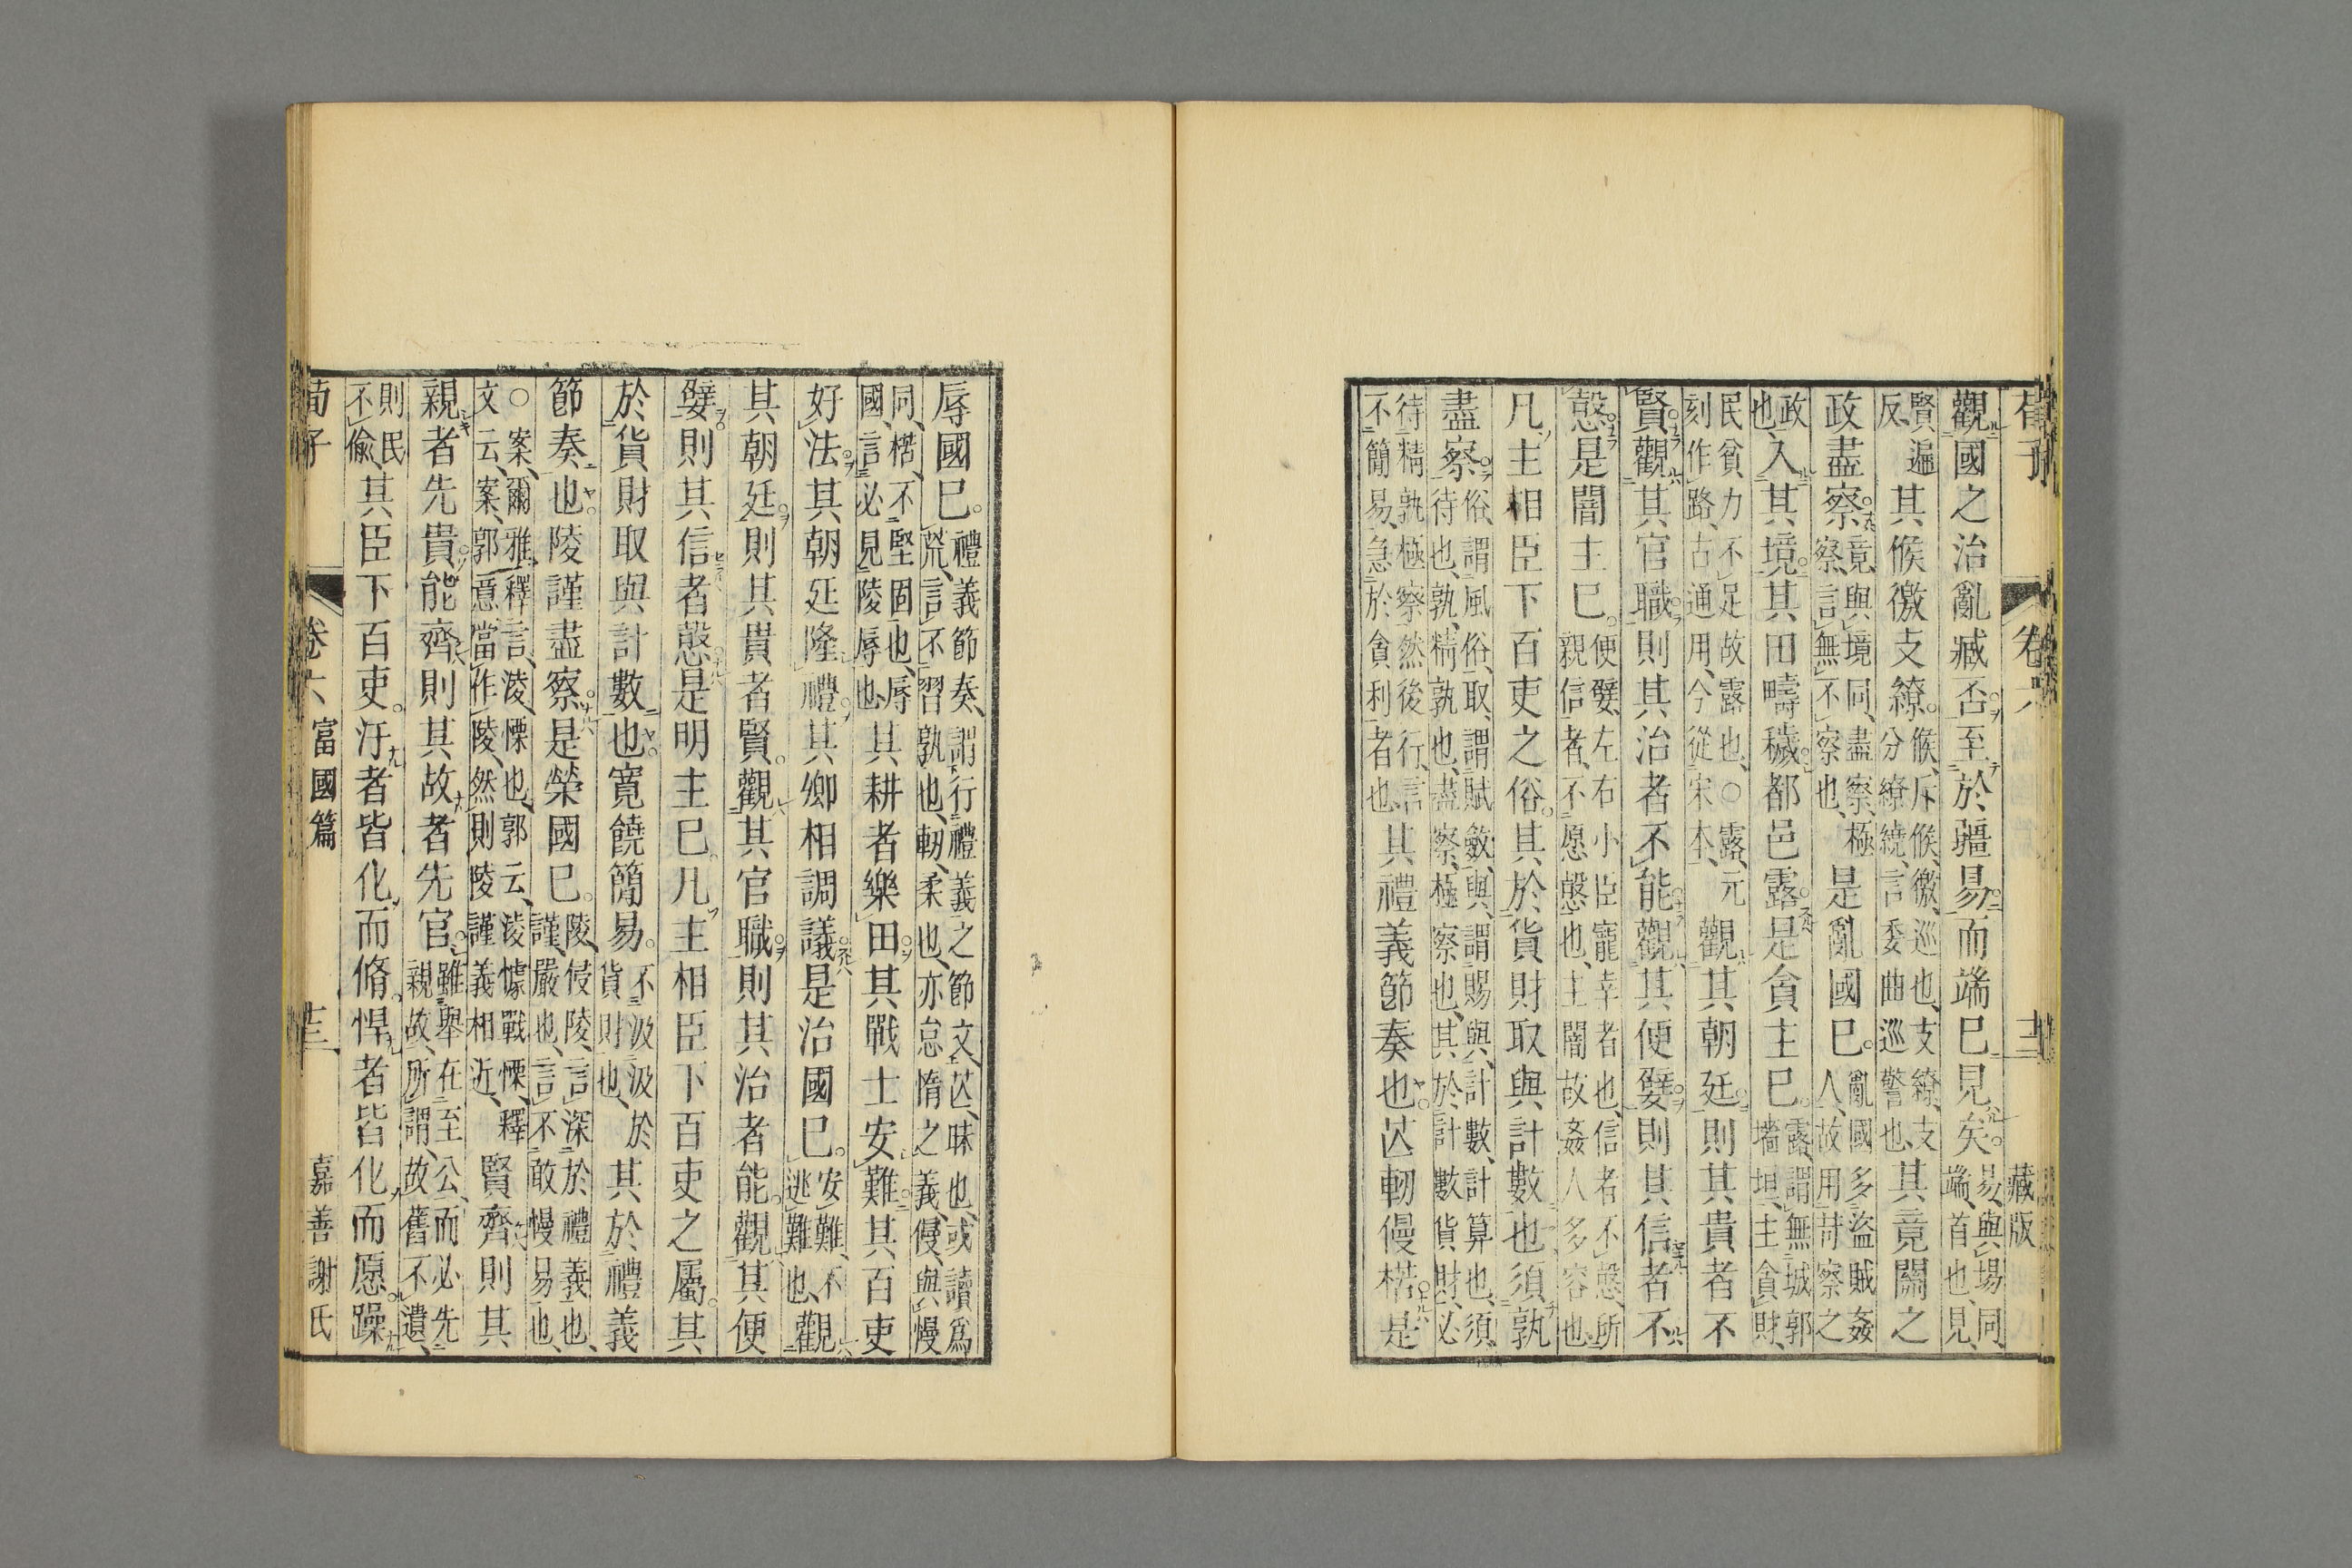 荀子 卷六 十二 藏版
觀國之治亂臧否至於疆易而端已見矣易、與場同、端、首也、見、
賢遍反、其候徼支繚候、斥候、徼、巡也、支繚、支分繚繞、言委曲巡警也、其竟關之
政盡察竟、與境同、盡察、極察、言無不察也、是亂國已亂國多盜賊姦人、故用苛察之
政也、入其境其田疇穢都邑露是貪主已露、謂無城郭墻垣、主貪財、
民貧力不足故露也、○露、元刻作路、古通用、今從宋本、觀其朝廷則其貴者不
賢觀其官職則其治者不能觀其便嬖則其信者不
愨是闇主已便嬖、左右小臣寵幸者也、信者不愨、所親信者、不愿愨也、主闇故姦人多容也、
凡主相臣下百吏之俗其於貨財取與計數也須孰
盡察俗、謂風俗、取、謂賦斂、與、謂賜與、計數、計算也、須、待也、孰、精孰也、盡察、極察也、其於計數貨財、必
待精孰極察然後行、言不簡易、急於貪利者也、其禮義節奏也芒軔僈楛是
辱國已禮義節奏、謂行禮義之節文、芒、昧也、或讀爲荒、言不習孰也、軔、柔也、亦怠惰之義、僈、與慢
同、楛、不堅固也、辱國、言必見陵辱也、其耕者樂田其戰士安難其百吏
好法其朝廷隆禮其卿相調議是治國已安難、不逃難也、觀
其朝廷則其貴者賢觀其官職則其治者能觀其便
嬖則其信者愨是明主已凡主相臣下百吏之屬其
於貨財取與計數也寬饒簡易不汲汲於貨財也、其於禮義
節奏也陵謹盡察是榮國已陵、侵陵、言深於禮義也、謹、嚴也、言不敢慢易也、
○案、爾雅、釋言、淩、慄也、郭云、淩懅戰慄、釋文云、案、郭意當作陵、然則陵謹義相近、賢齊則其
親者先貴能齊則其故者先官雖舉在至公、而必先親故、所謂、故舊不遺、
則民不偷、其臣下百吏汙者皆化而脩悍者皆化而愿躁
荀子 卷六 富國篇 十二 嘉善謝氏